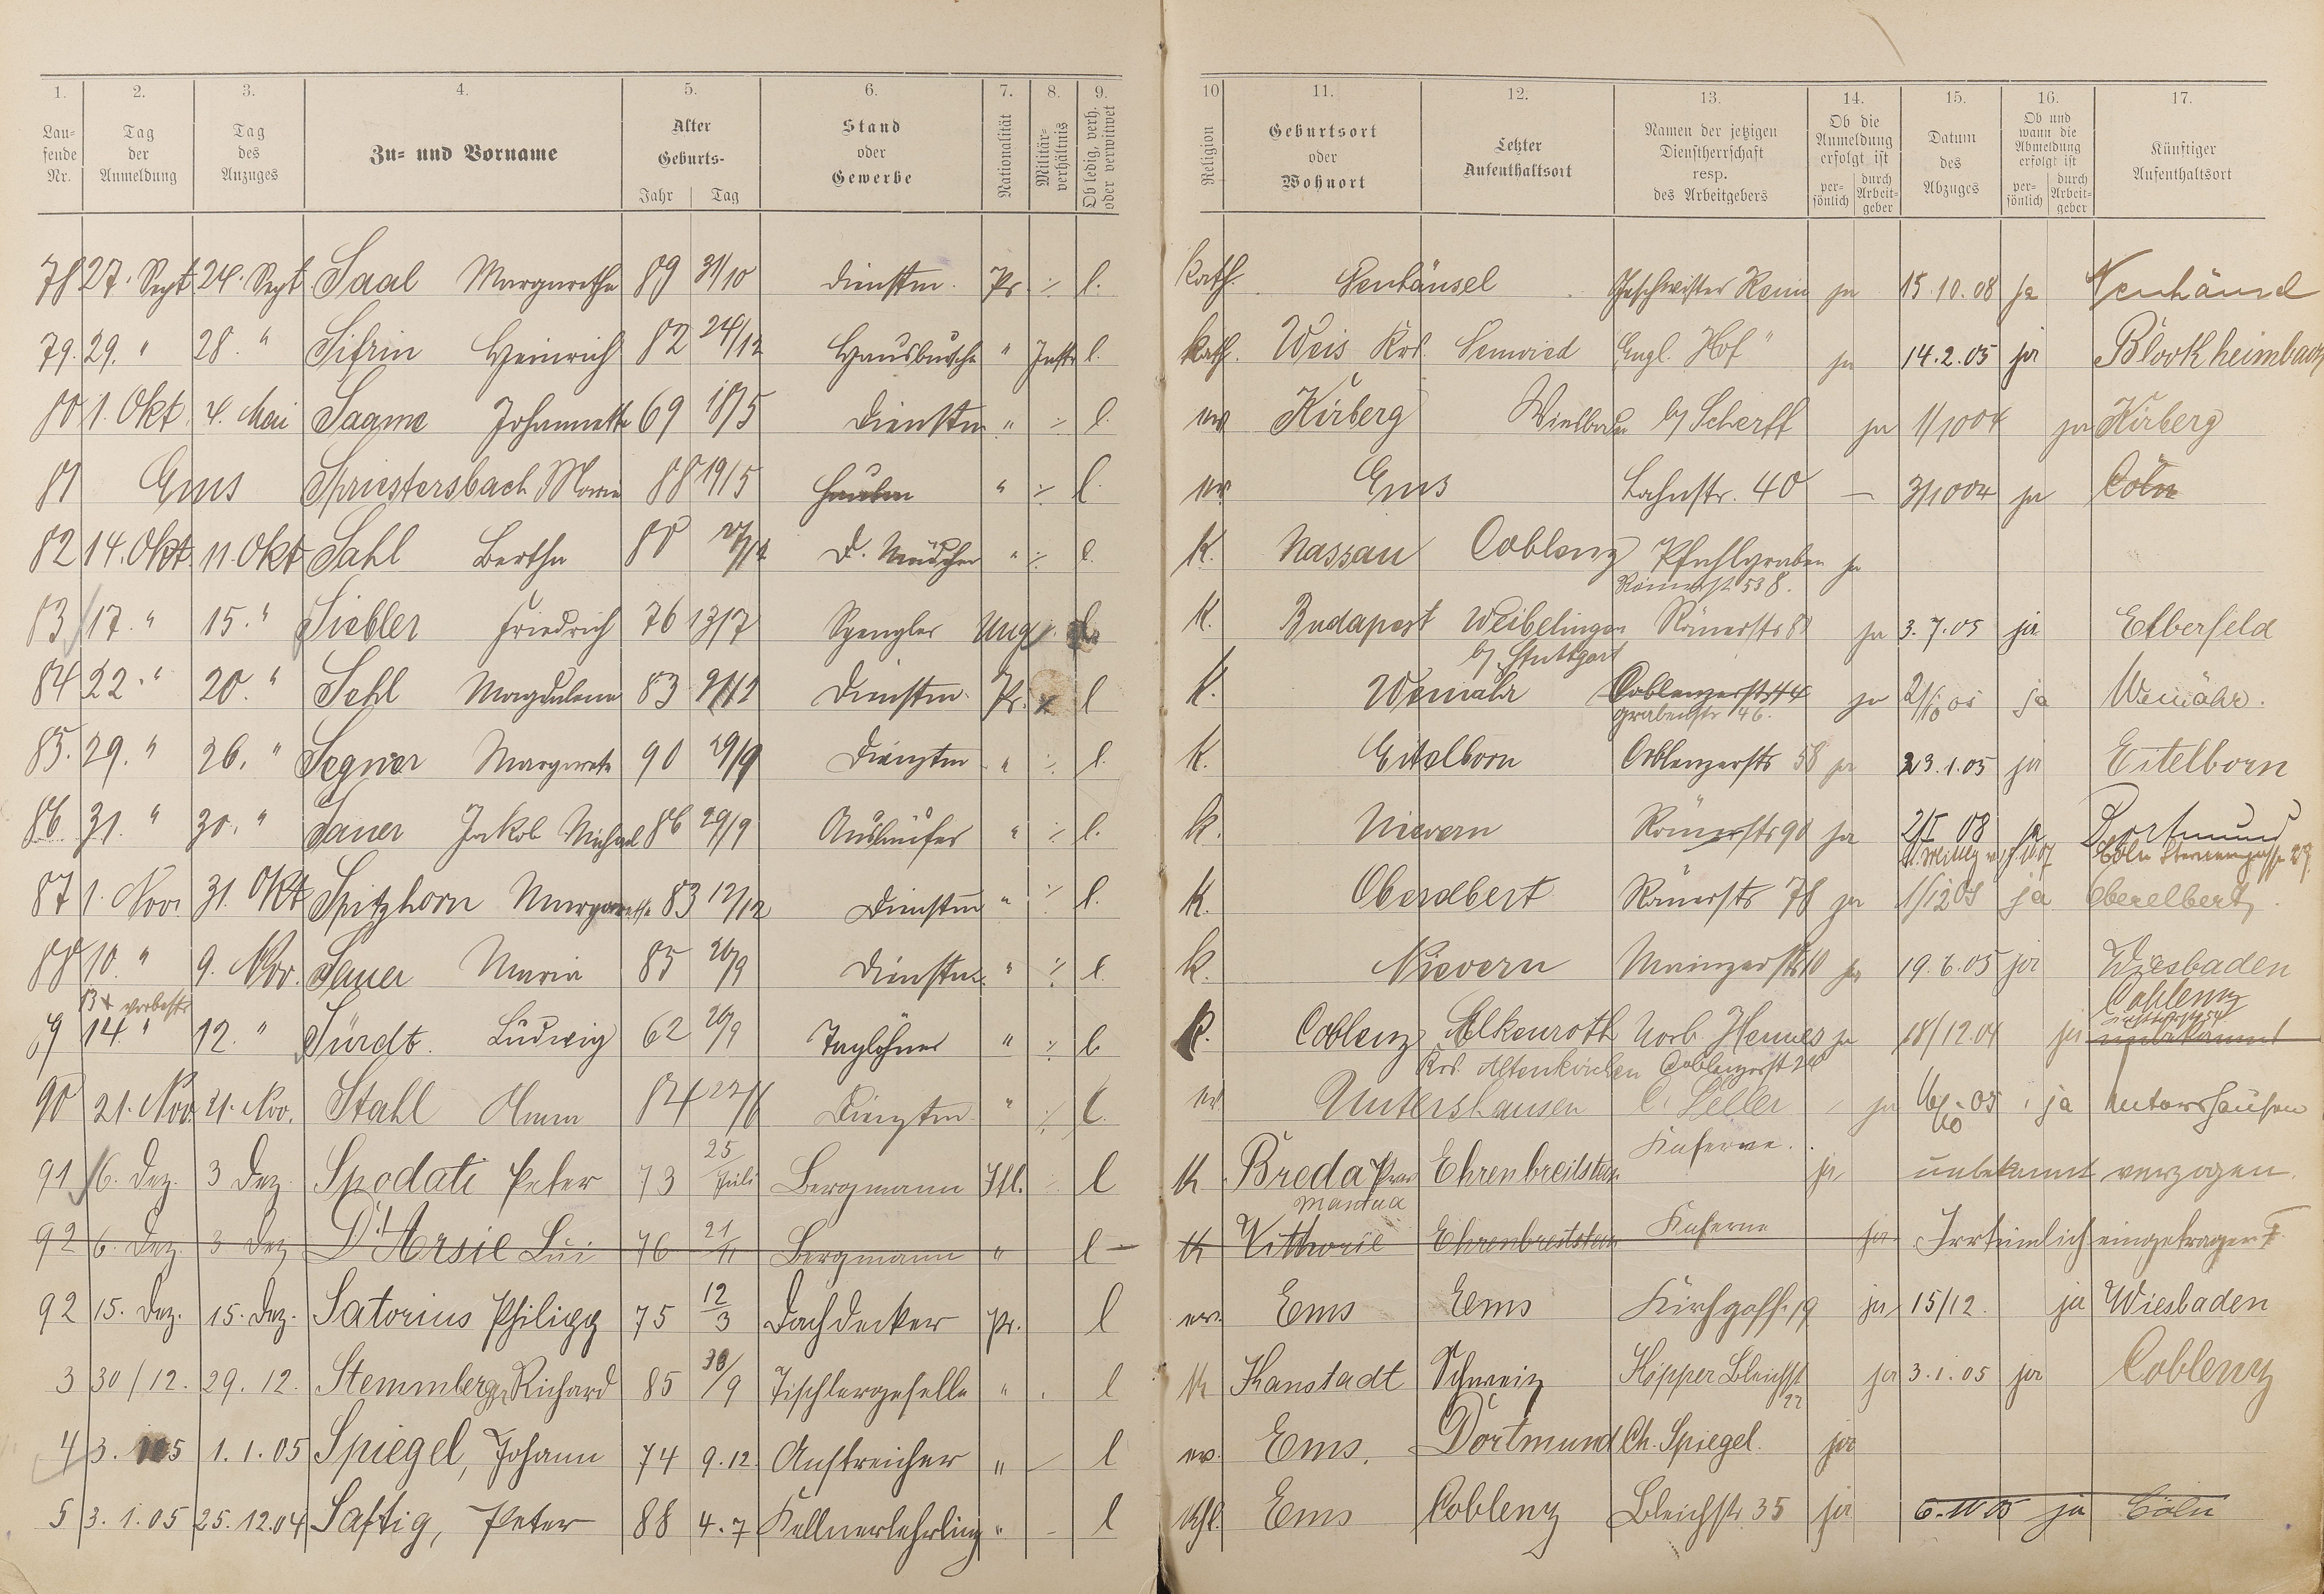 1. 2. 3. 4. 5. 6. 7. 8. 9. 10 11. 12. 13. 14. 15. 16. 17.
Lau-
fende
Nr.
Tag
der
Anmeldung
Tag
des
Anzuges
Zu- und Vorname
Alter
Geburts-
Jahr Tag
Stand
oder
Gewerbe
Nationalität
Militär-
verhältnis
Ob ledig, verh.
oder verwitwet
Religion
Geburtsort
oder
Wohnort
Letzter
Aufenthaltsort
Namen der jetzigen
Dienstherrschaft
resp.
des Arbeitgebers
Ob die
Anmeldung
erfolgt ist
per-
sönlich
durch
Arbeit-
geber
Datum
des
Abzuges
Ob und
wann die
Abmeldung
erfolgt ist
per-
sönlich
durch
Arbeit-
geber
Künftiger
Aufenthaltsort
78 27. Sept 24. Sept Saal Margarethe 89 31/10 Dienstm. Pr. ./. l. kath. Neuhäusel Geschwister ja 15.10.08 ja Neuhäusel
79. 29. " 28. " Sifrin Heinrich 82 24/12 Hausbursche " l. kath. Weis Krs. Neuwied Engl. Hof" ja 14.2.05 ja Blockheimbach
80 1. Okt. 4. Mai Sagme Johannette 69 18/5 Dienstm " ./. l. ev Kirberg b/ Scherff ja 1/1004 ja Kirberg
81 Ems Spriestersbach Marie 88 19/5 " ./. l. ev. Ems Lahnstr. 40 — 3/1004 ja Cöln
82 14. Okt. 11. Okt Sahl Bertha 88 D. Mädchen " ./. l. K. Nassau Coblenz Pfahlgraben ja
Römerst. 53 8.
83 17. " 15. " Siebler Friedrich 76 13/7 Spengler Ung. ./. K. Budapest Weibelingen Römerstr 81 ja 3.7.05 ja Elberfeld
b/ Stuttgart
84 22. " 20. " Sehl Magdalena 83 Dienstm. Pr. l K. Weinähr Coblenzerstr 44 ja 2/10 05 ja Weinähr.
Grabenstr 46.
85. 29. " 26. " Segner Margarete 90 29/9 Dienstm " ./. l. K. Eitelborn Coblenzerstr 58 ja 23.1.05 ja Eitelborn
86 31. " 30. " Sauer Jakob Michael 86 29/9 Ausläufer " ./. l. k. Nievern Römerstr 90 ja 2/I 08 ja Dortmund
87 1. Nov. 31. Okt Spitzhorn Margarethe 83 12/12 Dienstm " ./. l. K. Oberelbert Römerstr 78 ja 1/12 05 ja Oberelbert
88 10. " 9. Nov. Sauer Maria 85 20/9 Dienstm. " ./. l. k. Nievern Mainzerstr 10 ja 19.6.05 ja Wiesbaden
9 14. " 12. " Sürdt. Ludwig 62 20/9 Taglöhner " ./. l. K. Coblenz Elkenroth Norb. Hennes ja 18/12.04 ja Coblenz
unbekannt
Krs. Altenkirchen Coblenzerst 24
90 21. Nov. 21. Nov. Stahl Anna 84 22/6 Dienstm " ./. l. ev Untershausen C. Seller ja ja Untershausen
91 6. Dez. 3 Dez. Spodati Peter 73 25 Juli Bergmann Itl. l K Breda Prov Ehrenbreitstein Kaserne. ja unbekannt verzogen.
Mantua
92 6. Dez. 3 Dez D'Arsie Lui 76 21/11 Bergmann " l K Vittorie Ehrenbreitstein Kaserne ja Irrtümlich eingetragen
92 15. Dez. 15. Dez. Satorius Philipp 75 12/3 Dachdecker Pr. l ev. Ems Ems Kirchgasse 19 ja 15/12. ja Wiesbaden
3 30/12. 29. 12. Stemmberg Richard 85 30/9 Tischlergeselle " l K Kanstadt Schweiz Köpper Bleichst 22 ja 3.1.05 ja Coblenz
4 3. 1 05 1.1.05 Spiegel, Johann 74 9.12. Anstreicher " — l ev. Ems. Dortmund Ch. Spiegel. ja
5 3.1.05 25.12.04 Saftig, Peter 88 4.7 Kellnerlehrling " — l kth. Ems Coblenz Bleichstr. 35 ja 6.10 05 ja Cöln